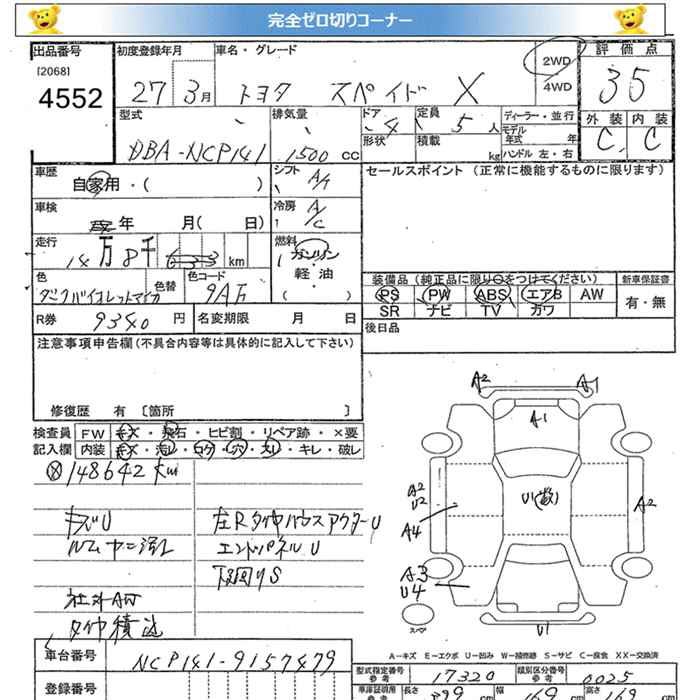 完全ゼロ切りコーナー
出品番号 初度登録年月 車名・グレード 2WD 評価点
[2068]
4552 27 3月 トヨタ スペイド X 4WD 35
型式 排気量 ドア 4 定員 5人 ディーラー・並行 外装 内装
DBA-NCP141 1500cc 形状 積載 kg モデル年式 年 C C
ハンドル 左・右
車歴 自家用・( ) シフト A/T セールスポイント (正常に機能するものに限ります)
車検 年 月( 日) 冷房 A/C
走行 14万8千 km 燃料 ガソリン
軽油
( )
色 色替 色コード 9AF 装備品 (純正品に限り○をつけてください) 新車保証書
PS PW ABS エアB AW 有・無
SR ナビ TV カワ
R券 9340円 名変期限 月 日 後日品
注意事項申告欄 (不具合内容等は具体的に記入して下さい)
修復歴 有 〔箇所 〕
検査員 FW キズ・飛石・ヒビ割・リペア跡・×要
記入欄 内装 キズ・汚レ・コゲ・穴・スレ・キレ・破レ
148642km
キズU 左RタイヤハウスアウターU
エンドパネルU
下回りS
社外AW
タイヤ積込
A2 A1
A1
A2
U2 U1 A2
A4
A3
U4
スペア
U1
A-キズ E-エクボ U-凹み W-補修跡 S-サビ C-腐食 XX-交換済
車台番号 NCP141-9157479
型式指定番号 参考 17320 類別区分番号 参考 0025
登録番号
車庫証明用 参考 長さ 幅 169 高さ 169